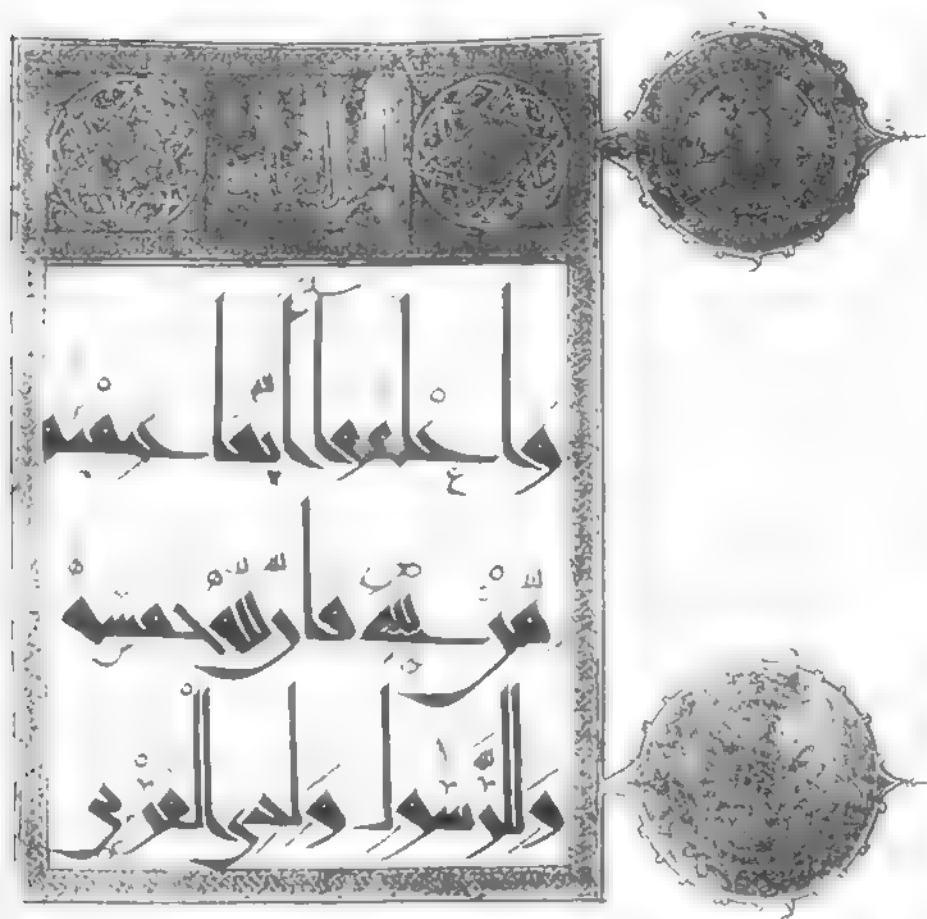 وَاعْلَمُوا أَنَّمَا غَنِمْتُمْ
مِّن شَيْءٍ فَأَنَّ لِلَّهِ خُمُسَهُ
وَلِلرَّسُولِ وَلِذِي الْقُرْبَىٰ